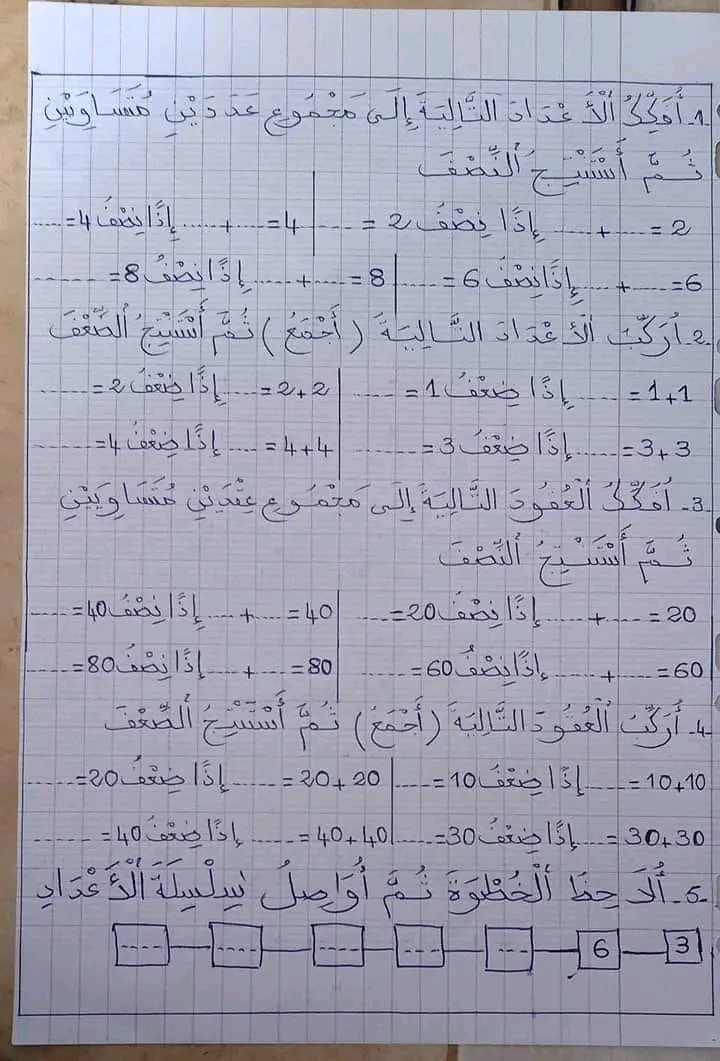 1. أُفَكِّكُ ٱلْأَعْدَادَ التَّالِيَةَ إِلَى مَجْمُوعِ عَدَدَيْنِ مُتَسَاوِيَيْنِ
ثُمَّ أَسْتَنْتِجُ ٱلنِّصْفَ
2 = ..... + ..... إِذًا نِصْفُ 2 = ..... | 4 = ..... + ..... إِذًا نِصْفُ 4 = .....
6 = ..... + ..... إِذًا نِصْفُ 6 = ..... | 8 = ..... + ..... إِذًا نِصْفُ 8 = .....
2. أُرَكِّبُ ٱلْأَعْدَادَ التَّالِيَةَ (أَجْمَعُ) ثُمَّ أَسْتَنْتِجُ ٱلضِّعْفَ
1+1 = ..... إِذًا ضِعْفُ 1 = ..... | 2+2 = ..... إِذًا ضِعْفُ 2 = .....
3+3 = ..... إِذًا ضِعْفُ 3 = ..... | 4+4 = ..... إِذًا ضِعْفُ 4 = .....
3. أُفَكِّكُ ٱلْعُقُودَ التَّالِيَةَ إِلَى مَجْمُوعِ عِقْدَيْنِ مُتَسَاوِيَيْنِ
ثُمَّ أَسْتَنْتِجُ ٱلنِّصْفَ
20 = ..... + ..... إِذًا نِصْفُ 20 = ..... | 40 = ..... + ..... إِذًا نِصْفُ 40 = .....
60 = ..... + ..... إِذًا نِصْفُ 60 = ..... | 80 = ..... + ..... إِذًا نِصْفُ 80 = .....
4. أُرَكِّبُ ٱلْعُقُودَ التَّالِيَةَ (أَجْمَعُ) ثُمَّ أَسْتَنْتِجُ ٱلضِّعْفَ
10+10 = ..... إِذًا ضِعْفُ 10 = ..... | 20+20 = ..... إِذًا ضِعْفُ 20 = .....
30+30 = ..... إِذًا ضِعْفُ 30 = ..... | 40+40 = ..... إِذًا ضِعْفُ 40 = .....
5. أُلَاحِظُ ٱلْخُطْوَةَ ثُمَّ أُوَاصِلُ سِلْسِلَةَ ٱلْأَعْدَادِ
3 6 .... .... .... .... ....